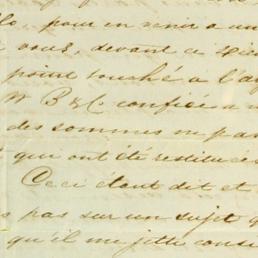 pour en venir à un
vous, devant ce
point touché à l'a
W B & C. confiées a
des sommes ne pas
qui ont été restituées
Ceci étant dit et
pas sur un sujet q
qu'il me jette cons